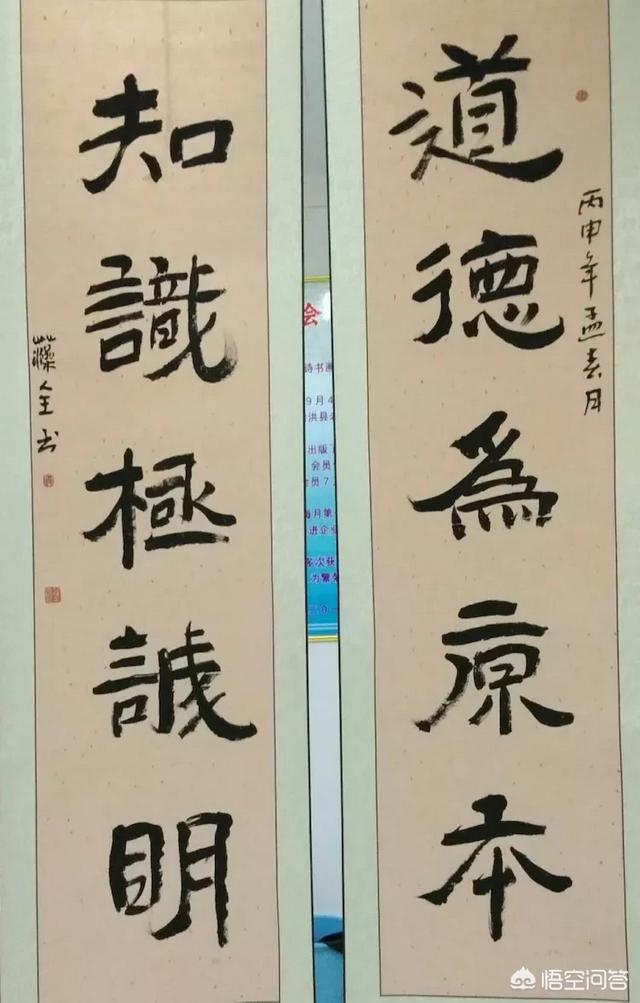 道德為原本
丙申年孟春月
知識極誠明
藻全书
会
诗书画
9月4
洪县
出版
会员
会员7
每月第
进企业
多次获
为繁荣
悟空问答